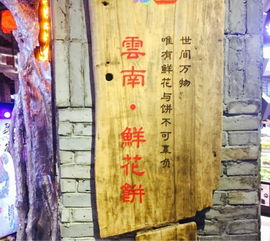 世间万物
唯有鲜花与饼不可辜负
雲南·鮮花餅